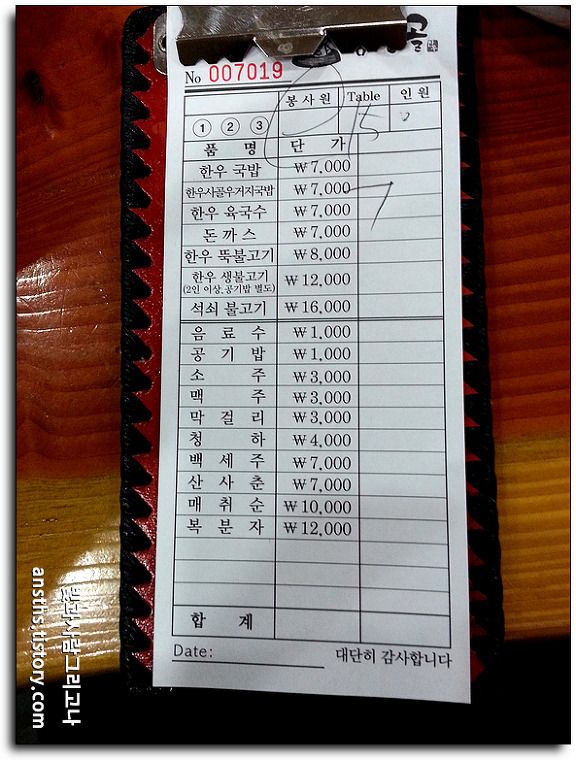 골
No 007019
봉사원 Table 인원
① ② ③ 15
품 명 단 가
한우 국밥 ₩7,000
한우사골우거지국밥 ₩7,000
한우 육국수 ₩7,000
돈까스 ₩7,000
한우 뚝불고기 ₩8,000
한우 생불고기 ₩12,000
(2인 이상,공기밥 별도)
석쇠 불고기 ₩16,000
음료수 ₩1,000
공기밥 ₩1,000
소 주 ₩3,000
맥 주 ₩3,000
막걸리 ₩3,000
청 하 ₩4,000
백세주 ₩7,000
산사춘 ₩7,000
매취순 ₩10,000
복분자 ₩12,000
합 계
Date:
대단히 감사합니다
빛과사람그리고나
ansths.tistory.com